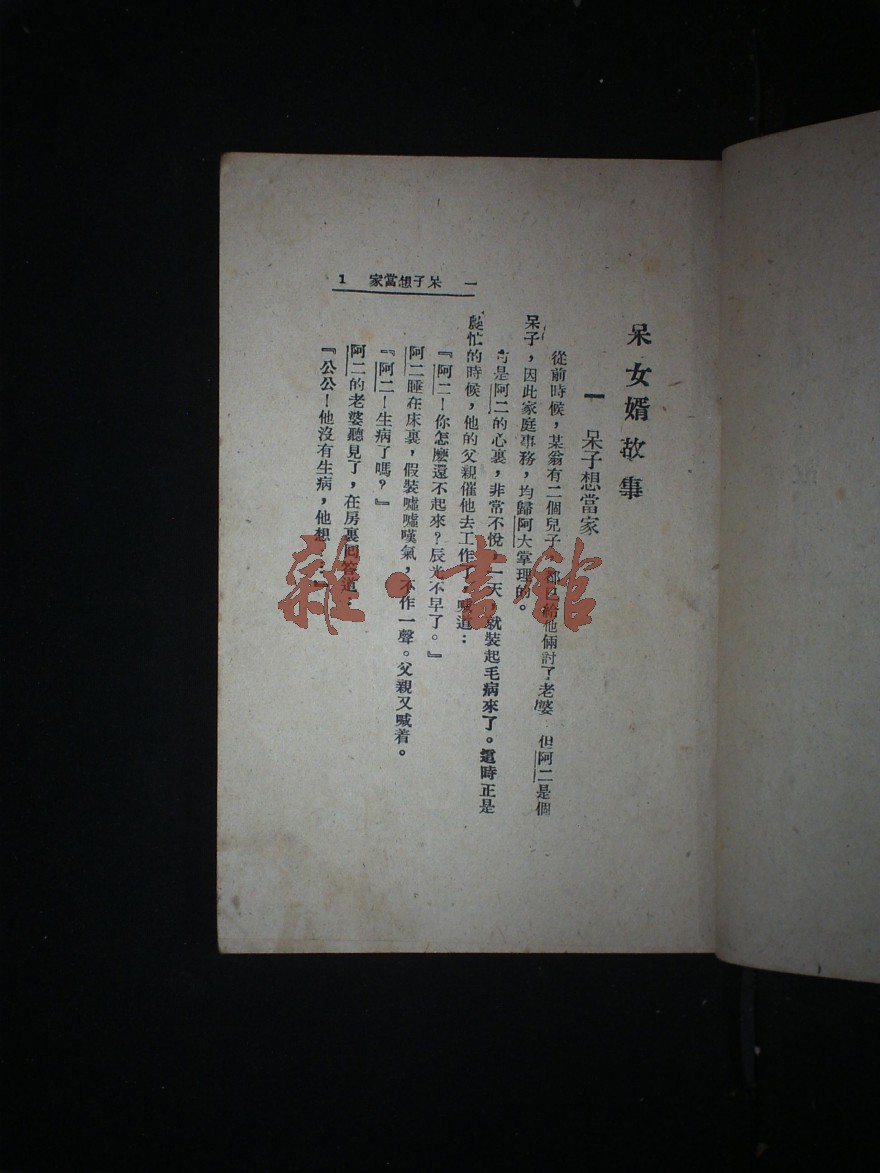 呆女婿故事
一　呆子想當家
從前時候，某翁有二個兒子，都已給他倆討了老婆　但阿二是個
呆子，因此家庭事務，均歸阿大掌理的。
是阿二的心裏，非常不悅，一天，就裝起毛病來了。這時正是
忙的時候，他的父親催他去工作了，喊道：
『阿二！你怎麽還不起來？辰光不早了。』
阿二睡在床裏，假裝噓噓嘆氣，不作一聲。父親又喊着。
『阿二！生病了嗎？』
阿二的老婆聽見了，在房裏回答道：
『公公！他沒有生病，他想？』
一　呆子想當家　1
雜·書館